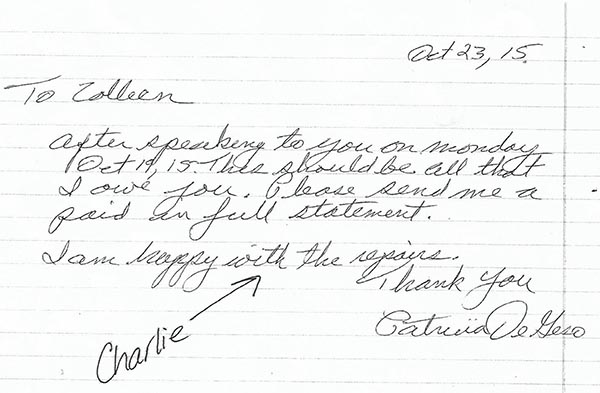 Oct 23, 15.
To Colleen
After speaking to you on monday
Oct 19, 15. This should be all that
I owe you. Please send me a
paid in full statement.
I am happy with the repairs.
Thank You
Charlie
Patricia De Geso